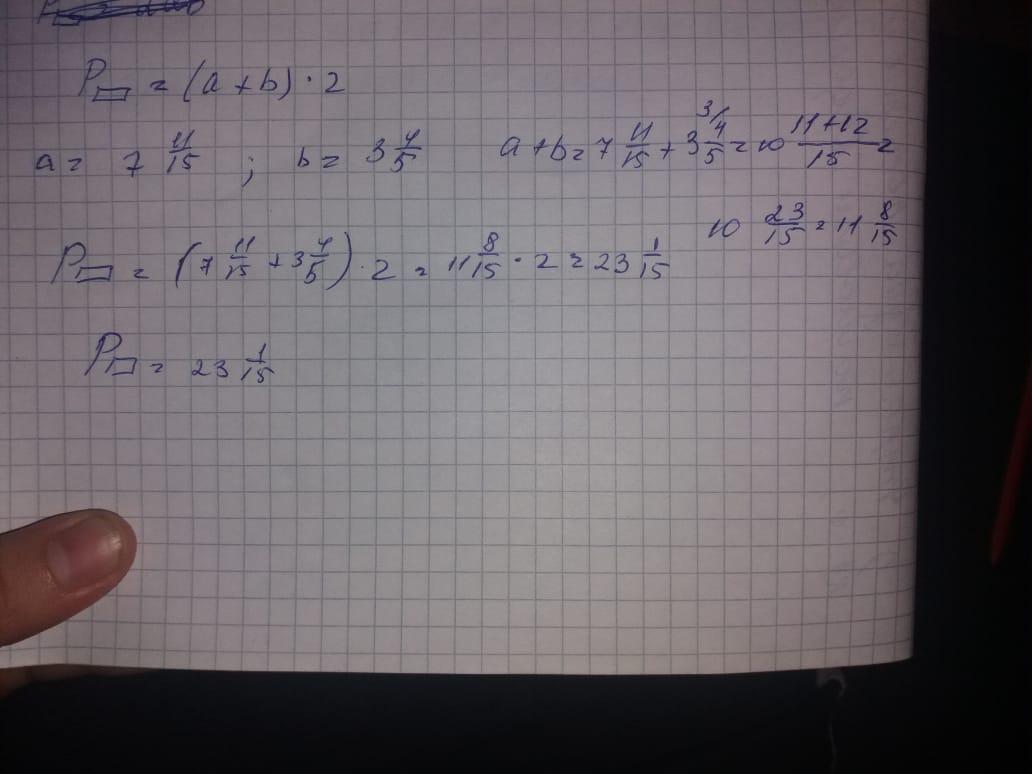 P▭ = (a + b) · 2
a = 7 11/15 ; b = 3 4/5
a + b = 7 11/15 + 3 ³⁄ 4/5 = 10 (11+12)/15 =
10 23/15 = 11 8/15
P▭ = (7 11/15 + 3 4/5) · 2 = 11 8/15 · 2 = 23 1/15
P▭ = 23 1/15